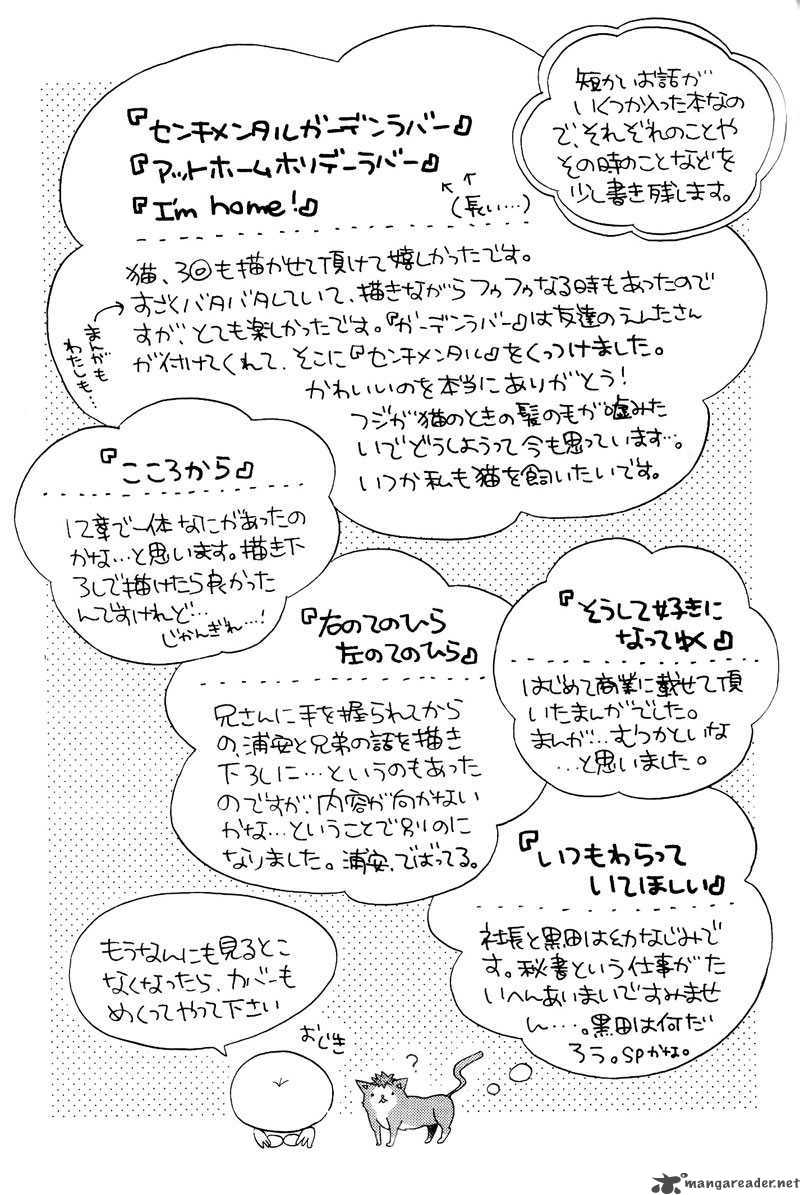 短かいお話が
いくつか入った本なの
で、それぞれのことや
その時のことなどを
少し書き残します。
『センチメンタルガーデンラバー』
『アットホームホリデーラバー』
『I'm home!』
(長い…)
猫、3回も描かせて頂けて嬉しかったです。
すごくバタバタしていて、描きながらフガフガなる時もあったので
すが、とても楽しかったです。『ガーデンラバー』は友達のえんたさん
が付けてくれて、そこに『センチメンタル』をくっつけました。
かわいいのを本当にありがとう!
フジが猫のときの髪の毛が嘘みた
いでどうしようって今も思っています…。
いつか私も猫を飼いたいです。
まんがも
わたしも…
『こころから』
12章で一体なにがあったの
かな…と思います。描き下
ろしで描けたら良かった
んですけれど…
じかんぎれ…!
『右のてのひら
左のてのひら』
兄さんに手を握られてから
の、浦安と兄弟の話を描き
下ろしに…というのもあった
のですが、内容が向かない
かな…ということで別のに
なりました。浦安、でばってる。
『そうして好きに
なってゆく』
はじめて商業に載せて頂
いたまんがでした。
まんが…むつかといな
…と思いました。
『いつもわらって
いてほしい』
社長と黒田は幼なじみで
す。秘書という仕事がた
いへんあいまいですみませ
ん…。黒田は何だ
ろう。SPかな。
もうなんにも見るとこ
なくなったら、カバーも
めくってやって下さい
おじぎ
?
mangareader.net